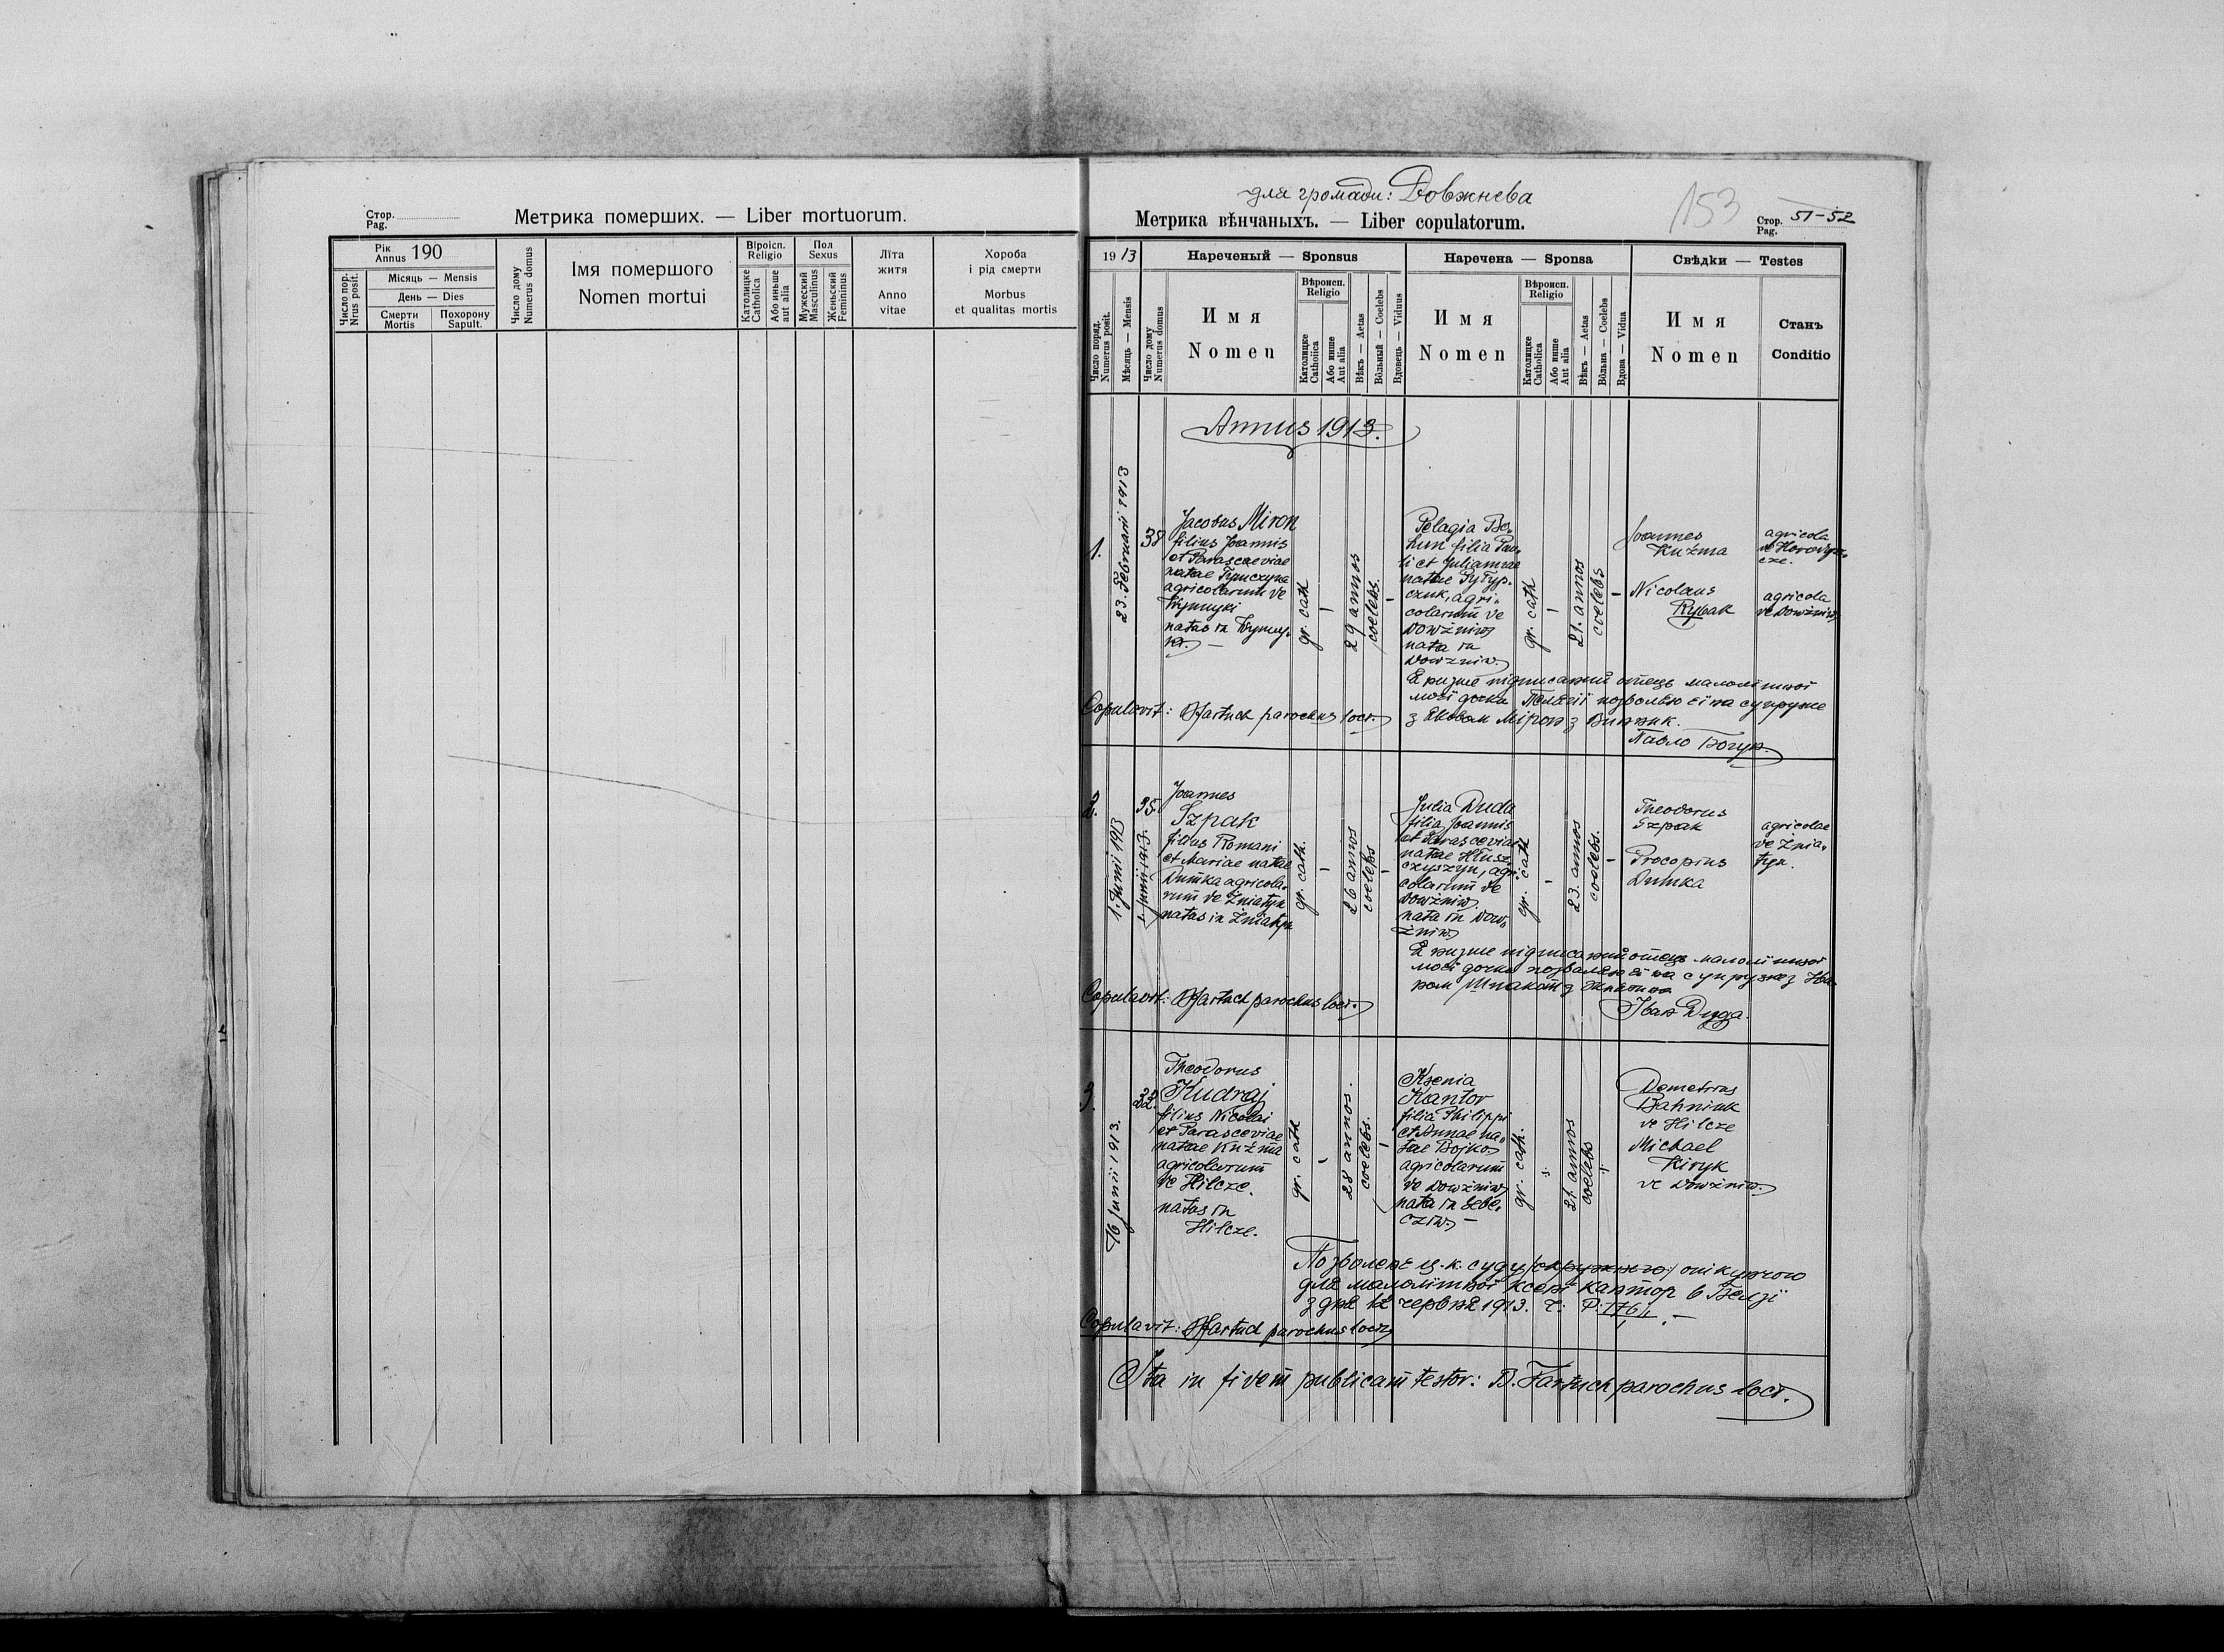 Стор.
Pag.
Метрика померших. — Liber mortuorum.
Рік
Annus 190
Число пор.
Nrus posit.
Місяць — Mensis
День — Dies
Смерти
Mortis
Похорону
Sapult.
Число дому
Numerus domus
Імя помершого
Nomen mortui
Віроісп.
Religio
Католицке
Catholica
Або иньше
aut alia
Пол
Sexus
Мужеский
Masculinus
Женьский
Femininus
Лїта
житя
Anno
vitae
Хороба
і рід смерти
Morbus
et qualitas mortis
для громади: Довжнева
153
Метрика вѣнчаныхъ. — Liber copulatorum.
Стор.
Pag.
51-52
1913
Нареченый — Sponsus
Наречена — Sponsa
Свѣдки — Testes
Число поряд.
Numerus posit.
Мѣсяць — Mensis
Число дому
Numerus domus
Имя
Nomen
Вѣроисп.
Religio
Католицке
Catholica
Або инше
Aut alia
Вѣкъ — Aetas
Вôльный — Coelebs
Вдовець — Viduus
Имя
Nomen
Вѣроисп.
Religio
Католицке
Catholica
Або инше
Aut alia
Вѣкъ — Aetas
Вôльна — Coelebs
Вдова — Vidua
Имя
Nomen
Станъ
Conditio
Annus 1913.
1.
23. Februarii 1913
38
Jacobus Miron
filius Joannis
et Parasceviae
natae
agricolarum de
natus in
gr. cath
29 annos
coelebs.
Pelagia Bo-
hun filia Pau-
li et Julianae
natae
czuk, agri-
colarum de
Dowżniw
nata in
Dowżniw.
gr. cath
21. annos
coelebs
Joannes
Kuźma
agricola
Nicolaus
Rybak
agricola
de Dowżniw
Я низше підписаний отець малолїтної
моєї дочки Пелягії позволяю єї на супруже
з Яковом Мірон з Винник.
Павло Богун.
Copulavit: BFartuch parochus loci.
2.
1. Junii 1913
1. Junii 1913.
35.
Joannes
Szpak
filius Romani
et Mariae natae
Dumka agricola-
rum de Żniatyn
natus in Żniatyn
gr. cath.
26 annos
coelebs
Julia Duda
filia Joannis
et Parasceviae
natae Hłusz-
czyszyn, agri-
colarum de
Dowżniw.
nata in Dow-
żniw.
gr. cath
23. annos
coelebs.
Theodorus
Szpak
Procopius
Dumka
agricolae
de Żnia-
tyn.
Я низше підписаний отець малолїтної
моєї дочки позваляю єї на супруже з Іва-
ном Шпаком з Жнятина
Іван Дуда.
Copulavit: BFartuch parochus loci.
3.
16 Junii 1913.
22.
Theodorus
Kudraj
filius Nicolai
et Parasceviae
natae Kuźma
agricolarum
de Hilcze.
natus in
Hilcze.
gr. cath
28 annos.
coelebs.
Ksenia
Kantor
filia Philippi
et Annae na-
tae Bojko
agricolarum
de Dowżniw
nata in Sebe-
cziw. —
gr. cath.
21. annos
coelebs
Demetrius
Bahniuk
de Hilcze
Michael
Kiryk
de Dowżniw.
Позволенє ц.-к. суду (окружного) опікунчого
для малолїтної Ксенї Кантор в Белзї
з дня 12 червня 1913.
Copulavit: BFartuch parochus loci
Ita in fidem publicam testor: B. Fartuch parochus loci.